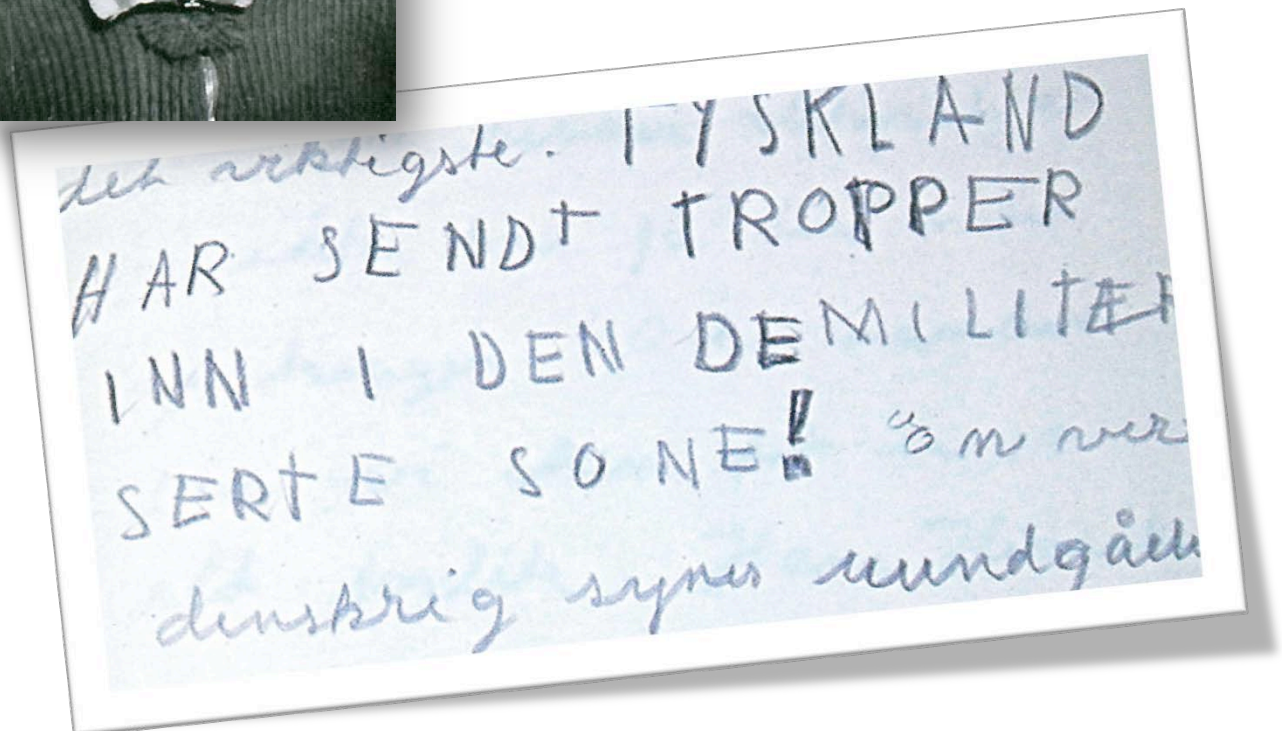 det viktigste. TYSKLAND
HAR SENDT TROPPER
INN I DEN DEMILITÆR
SERTE SONE! En ver
denskrig synes uundgåeli